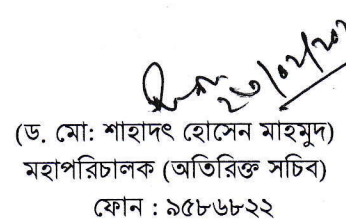 (ড. মো: শাহাদৎ হোসেন মাহমুদ)
মহাপরিচালক (অতিরিক্ত সচিব)
ফোন : ৯৫৮৬৮২২